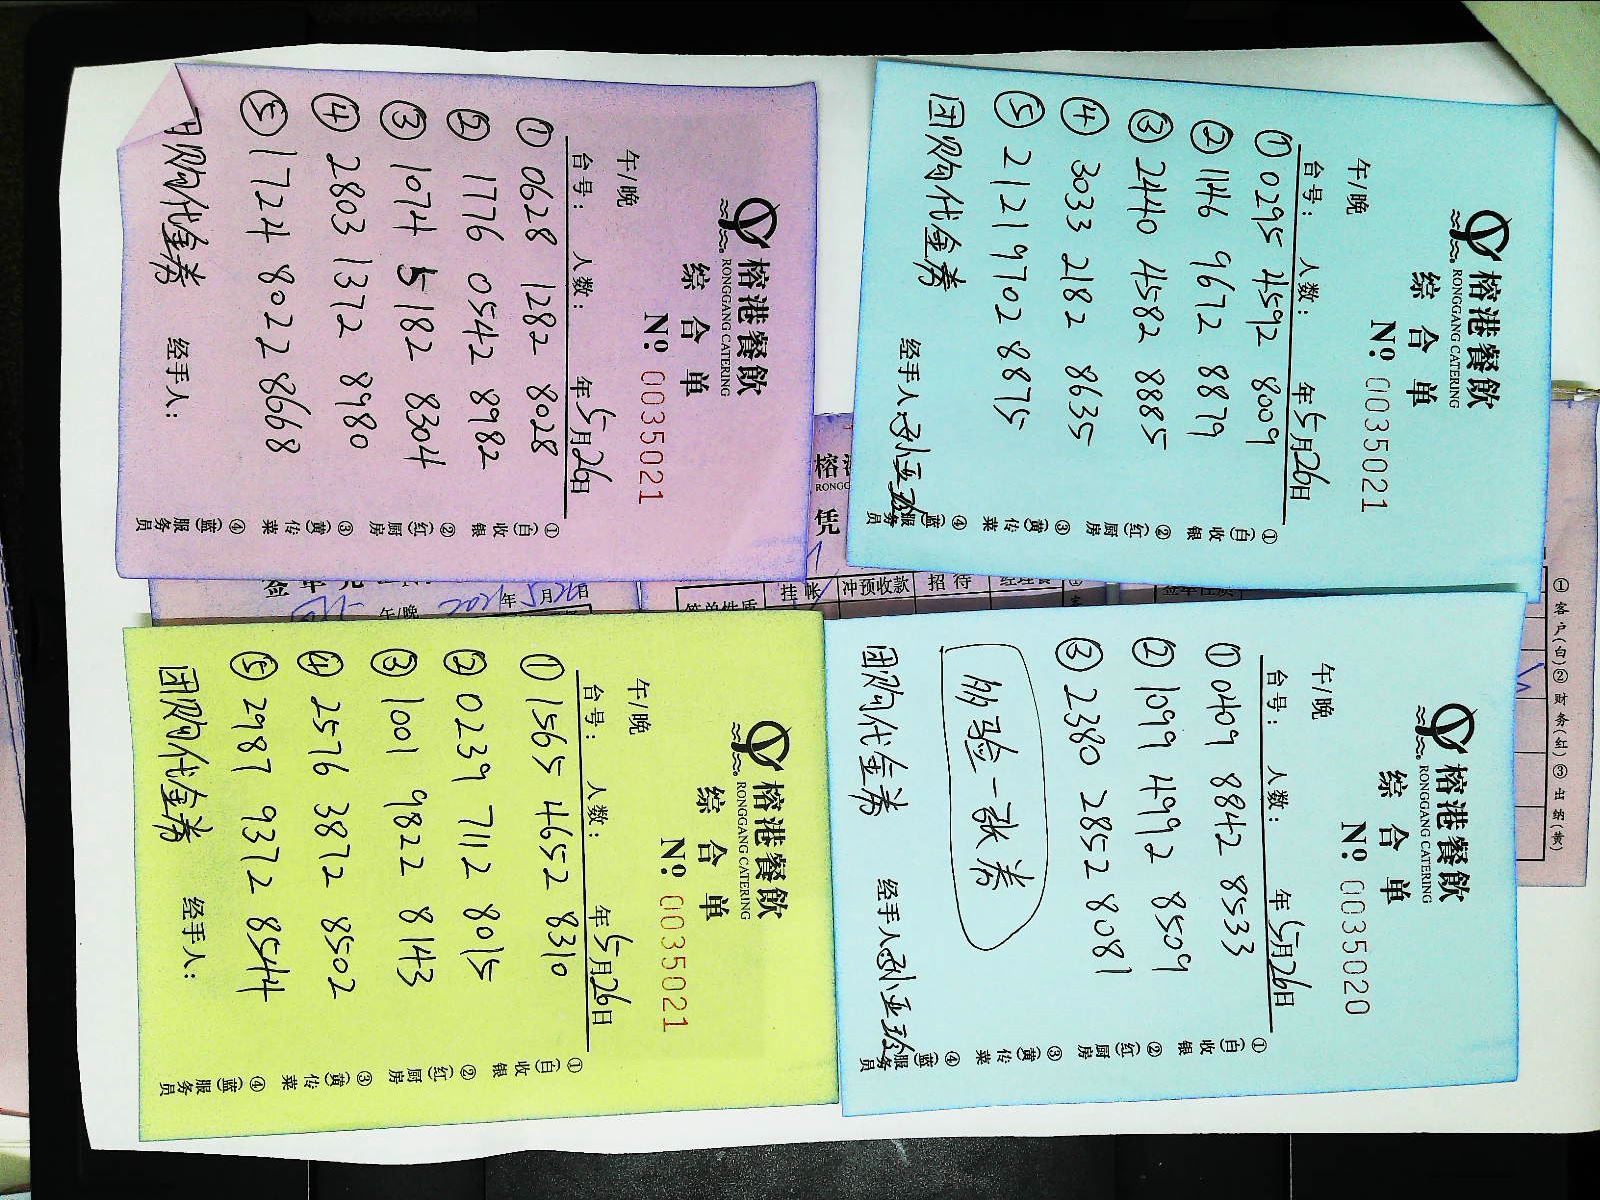 榕港餐飲
RONGGANG CATERING
综合单
№: 0035021
午/晚 年5月26日
台号: 人数:
① 0628 1282 8028
② 1776 0542 8982
③ 1074 5182 8304
④ 2803 1372 8980
⑤ 1724 8022 8668
团购代金券 经手人:
①(白)收银 ②(红)厨房 ③(黄)传菜 ④(蓝)服务员
榕港餐飲
RONGGANG CATERING
综合单
№: 0035021
午/晚 年5月26日
台号: 人数:
① 0295 4592 8009
② 1146 9672 8879
③ 2440 4582 8885
④ 3033 2182 8635
⑤ 2121 9702 8875
团购代金券 经手人:孙亚玲
①(白)收银 ②(红)厨房 ③(黄)传菜 ④(蓝)服务员
榕港餐飲
RONGGANG CATERING
综合单
№: 0035021
午/晚 年5月26日
台号: 人数:
① 1565 4652 8310
② 0239 7112 8015
③ 1001 9822 8143
④ 2576 3872 8502
⑤ 2987 9372 8544
团购代金券 经手人:
①(白)收银 ②(红)厨房 ③(黄)传菜 ④(蓝)服务员
榕港餐飲
RONGGANG CATERING
综合单
№: 0035020
午/晚 年5月26日
台号: 人数:
① 0409 8842 8533
② 1099 4992 8509
③ 2380 2852 8081
多验一张券
团购代金券 经手人孙亚玲
①(白)收银 ②(红)厨房 ③(黄)传菜 ④(蓝)服务员
榕
RONGG
凭
午/晚 年5月
挂帐 冲预收款 招待
①客户(白)②财务(红)③出纳(黄)